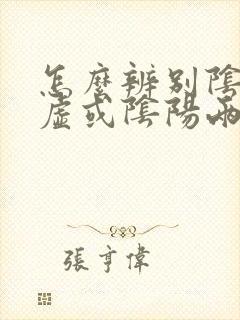 怎麼辨別陰
虛或陰陽兩
張亨偉